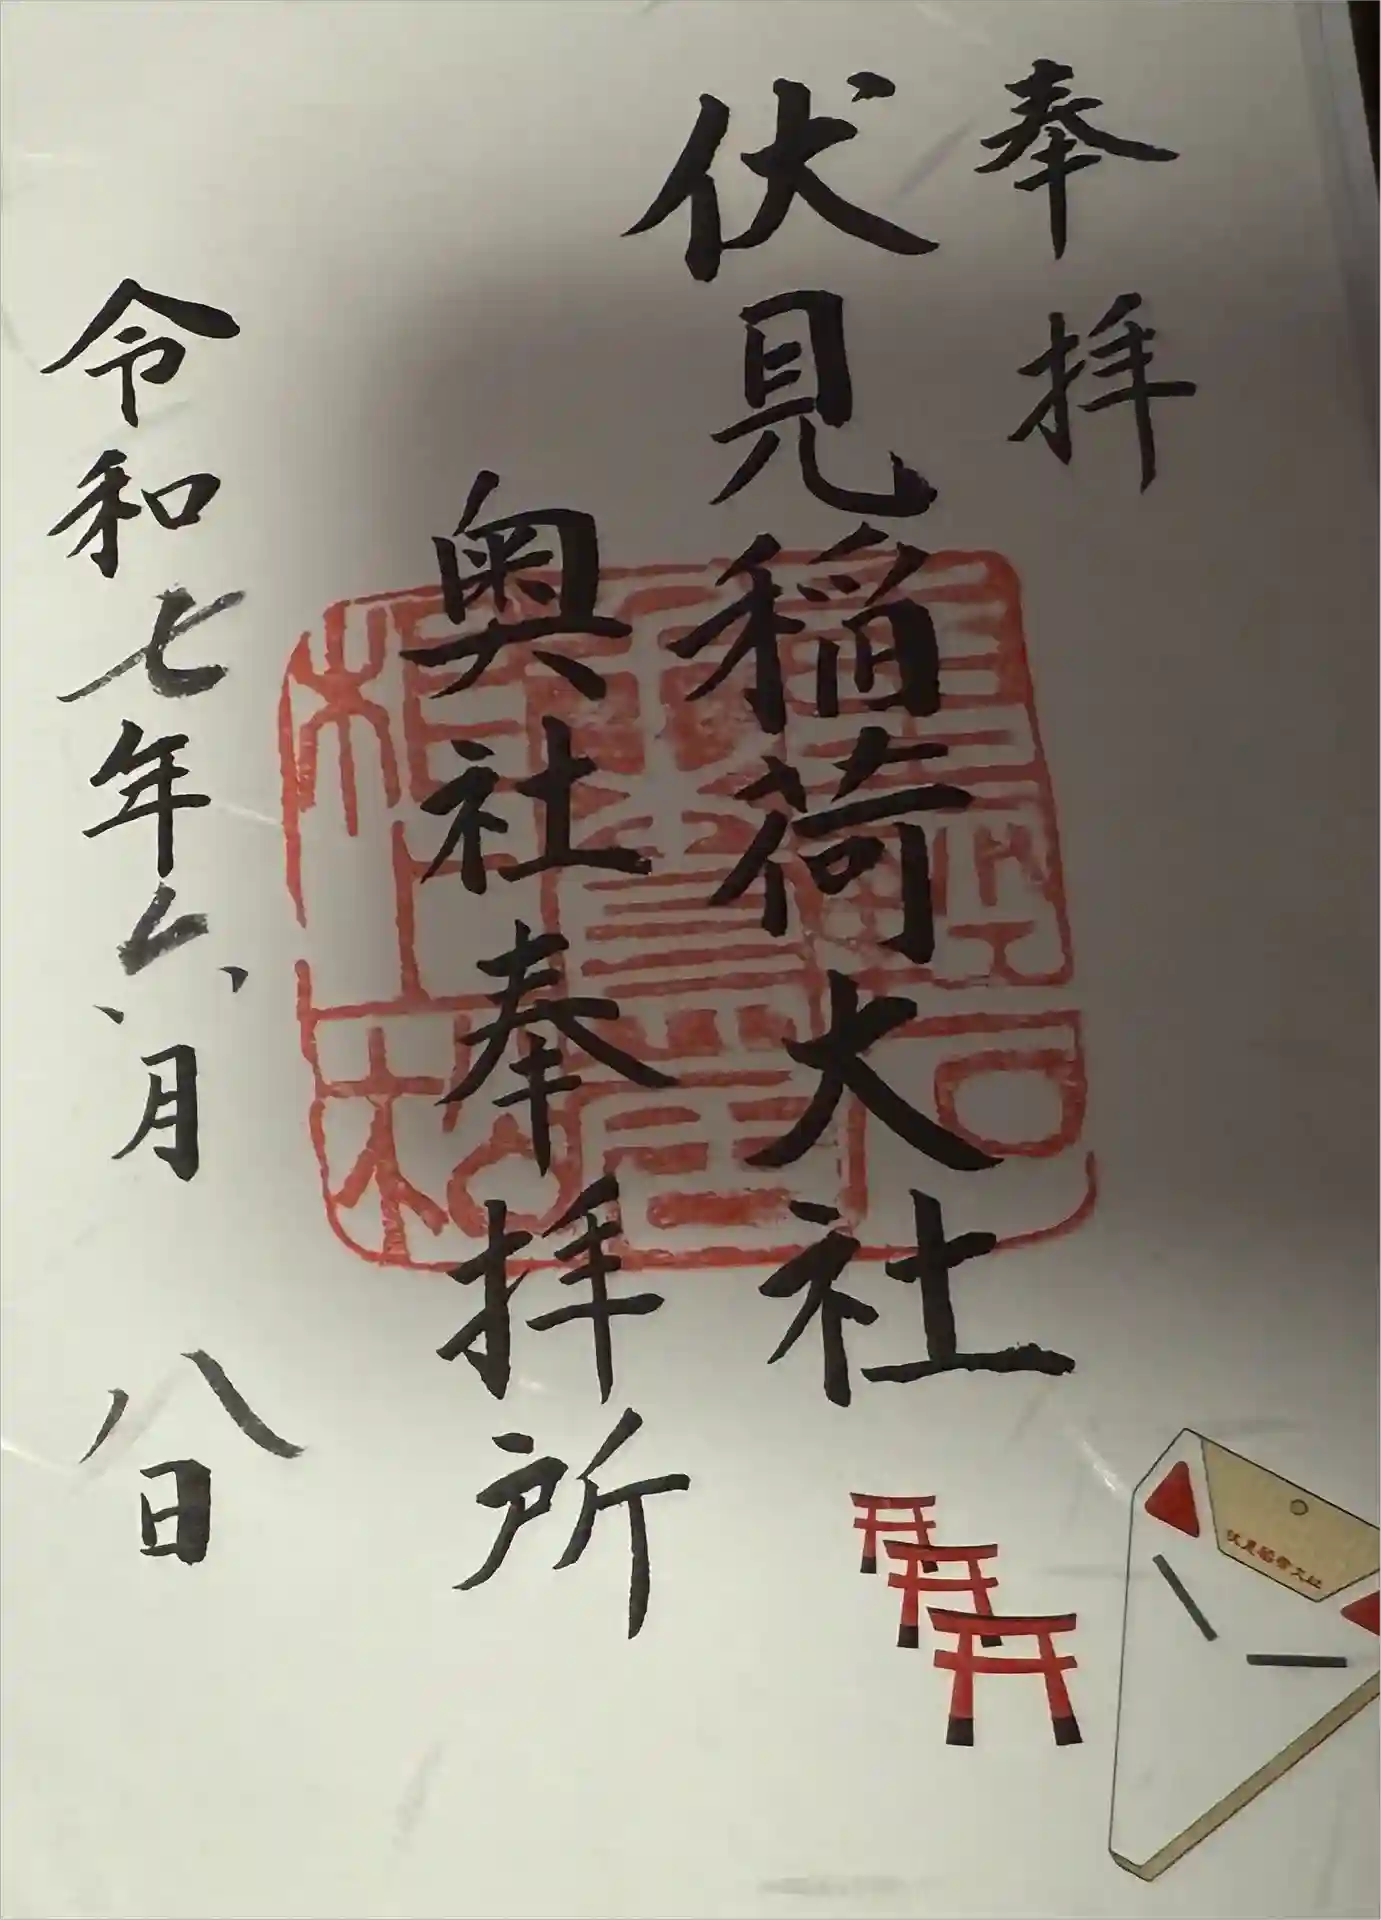 奉拝
伏見稲荷大社
奥社奉拝所
令和七年六月八日
伏見稲荷大社